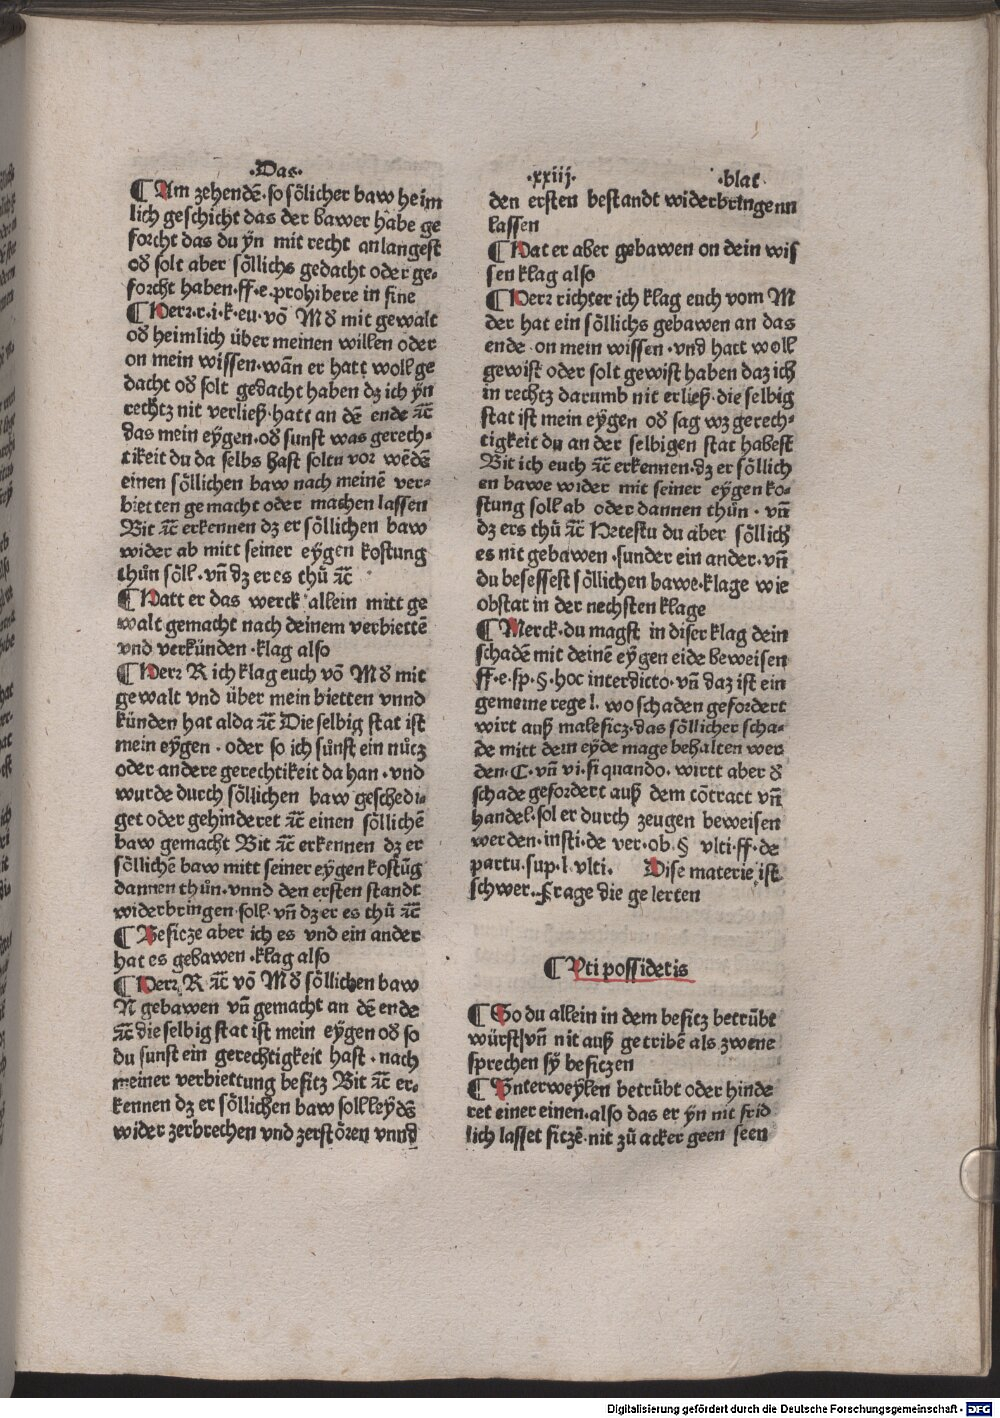 ·Das·
¶ Am zehendē·so sȯlicher baw heim
lich geschicht das der bawer habe ge
forcht das du ẏn mit recht anlangest
od solt aber sȯllichs gedacht oder ge⸗
forcht haben·ff·e·prohibere in fine
¶ Herr·r·i·k·eu·vō M d mit gewalt
od heimlich über meinen willen oder
on mein wissen·wān er hatt woll ge
dacht od solt gedacht haben dz ich ẏn
rechtz nit verließ·hatt an dē ende ⁊c̄
das mein eẏgen·od sunst was gerech⸗
tikeit du da selbs hast soltu vor wēdē
einen sȯllichen baw nach meinē ver⸗
bietten gemacht oder machen lassen
Bit ⁊c̄ erkennen dz er sȯllichen baw
wider ab mitt seiner eẏgen kostung
thůn sȯll·vn̄ dz er es thů ⁊c̄
¶ Hatt er das werck allein mitt ge
walt gemacht nach deinem verbiettē
vnd verkünden·klag also
¶ Herr R ich klag euch vō M d mit
gewalt vnd über mein bietten vnnd
künden hat alda ⁊c̄ Die selbig stat ist
mein eẏgen·oder so ich sůnst ein nůcz
oder andere gerechtikeit da han·vnd
wurde durch sȯllichen baw geschedi⸗
get oder gehinderet ⁊c̄ einen sȯllichē
baw gemacht Bit ⁊c̄ erkennen dz er
sȯllichē baw mitt seiner eẏgen kostūg
dannen thůn·vnnd den ersten standt
widerbringen soll·vn̄ dz er es thů ⁊c̄
¶ Besicze aber ich es vnd ein ander
hat es gebawen·klag also
¶ Herr R·⁊c̄ vō M d sȯllichen baw
N gebawen vn̄ gemacht an dē ende
⁊c̄ die selbig stat ist mein eẏgen od so
du sunst ein gerechtigkeit hast·nach
meiner verbiettung besitz Bit ⁊c̄ er⸗
kennen dz er sȯllichen baw soll leẏdē
wider zerbrechen vnd zerstȯren vnnd
·xxiij· ·blat·
den ersten bestandt widerbringenn
lassen
¶ Hat er aber gebawen on dein wis
sen klag also
¶ Herr richter ich klag euch vom M
der hat ein sȯllichs gebawen an das
ende·on mein wissen·vnd hatt woll
gewist oder solt gewist haben daz ich
in rechtz darumb nit erließ·die selbig
stat ist mein eẏgen od sag wz gerech⸗
tigkeit du an der selbigen stat habest
Bit ich euch ⁊c̄ erkennen·dz er sȯllich
en bawe wider mit seiner eẏgen ko⸗
stung soll ab oder dannen thůn·vn̄
dz ers thů ⁊c̄ Hetestu du aber sȯllich
es nit gebawen·sunder ein ander·vn̄
du besessest sȯllichen bawe·klage wie
obstat in der nechsten klage
¶ Merck·du magst in diser klag dein
schadē mit deinē eẏgen eide beweisen
ff·e·sp·§·hoc interdicto·vn̄ daz ist ein
gemeine regel·wo schaden gefordert
wirt auß malesicz·das sȯllicher scha⸗
de mitt dem eẏde mage behalten wer
den·C·vn̄ vi·si quando·wirtt aber d
schade gefordert auß dem cōtract vn̄
handel·sol er durch zeugen beweisen
werden·insti·de ver·ob·§ vlti·ff·de
partu·sup·l·vlti. Dise materie ist
schwer·Frage die gelerten
¶ Vti possidetis
¶ So du allein in dem besicz betrübt
würst vn̄ nit auß getribē als zwene
sprechen sẏ besiczen
¶ Vnterweẏlen betrübt oder hinde
ret einer einen·also das er ẏn nit frid
lich lasset siczē·nit zů acker geen seen
Digitalisierung gefördert durch die Deutsche Forschungsgemeinschaft - DFG